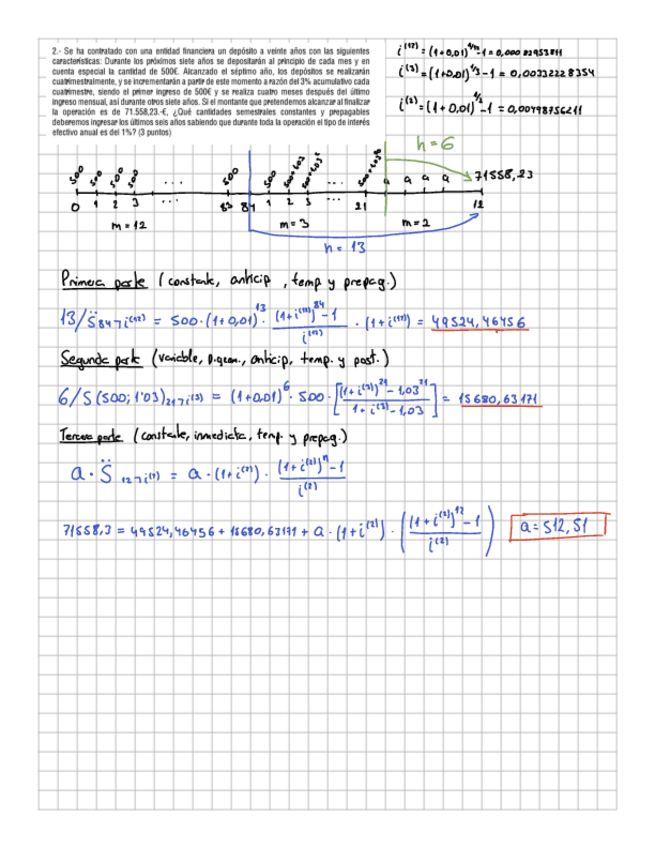 2.- Se ha contratado con una entidad financiera un depósito a veinte años con las siguientes
características: Durante los próximos siete años se depositarán al principio de cada mes y en
cuenta especial la cantidad de 500€. Alcanzado el séptimo año, los depósitos se realizarán
cuatrimestralmente, y se incrementarán a partir de este momento a razón del 3% acumulativo cada
cuatrimestre, siendo el primer ingreso de 500€ y se realiza cuatro meses después del último
ingreso mensual, así durante otros siete años. Si el montante que pretendemos alcanzar al finalizar
la operación es de 71.558,23.-€, ¿Qué cantidades semestrales constantes y prepagables
deberemos ingresar los últimos seis años sabiendo que durante toda la operación el tipo de interés
efectivo anual es del 1%? (3 puntos)
i^(12) = (1+0,01)^1/12 -1 = 0,00082953811
i^(3) = (1+0,01)^1/3 -1 = 0,00332228354
i^(2) = (1+0,01)^1/2 -1 = 0,00498756211
h = 6
500 500 500 500 ... 500 500 ... a a a a 71558,23
0 1 2 3 ... 83 84 1 2 3 ... 21 12
m = 12 m = 3 m = 2
h = 13
Primera parte (constante, anticip, temp y prepag.)
13/S̈84¬i^(12) = 500·(1+0,01)^13 · (1+i^(12))^84 -1 / i^(12) · (1+i^(12)) = 49524,46456
Segunda parte (variable, p.geom., anticip, temp. y post.)
6/S(500; 1'03)21¬i^(3) = (1+0,01)^6 · 500 · [(1+i^(3))^21 - 1,03^21 / 1+i^(3) - 1,03] = 15680,63171
Tercera parte (constante, inmediata, temp. y prepag.)
a · S̈12¬i^(2) = a · (1+i^(2)) · (1+i^(2))^n -1 / i^(2)
71558,3 = 49524,46456 + 15680,63171 + a · (1+i^(2)) · ((1+i^(2))^12 -1 / i^(2)) a = 512,51